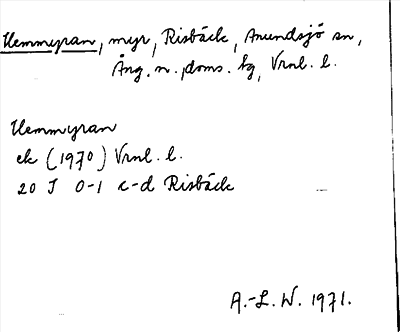 Hemmyran, myr, Risbäck, Anundsjö sn,
Ång. n. doms. tg, Vrnl. l.
Hemmyran
ek (1970) Vrnl. l.
20 J 0-1 c-d Risbäck
A.-L. W. 1971.